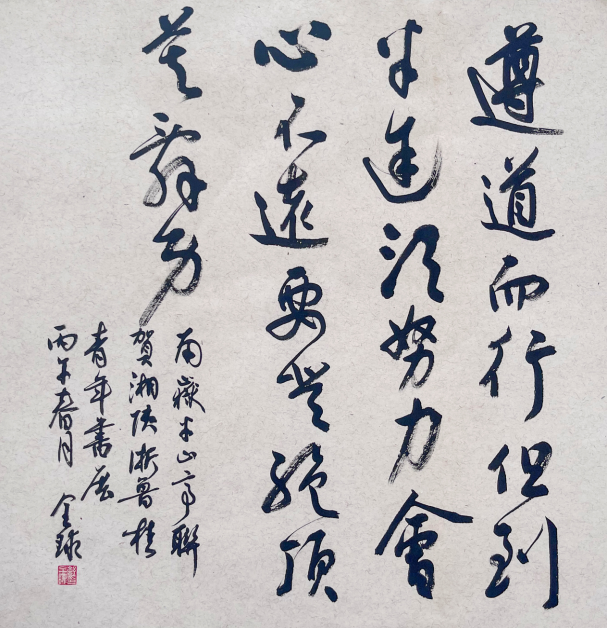 遵道而行但到
半途須努力會
心不遠要登絕頂
莫辭勞
南嶽半山亭聯
賀湘陝浙魯桂
青年書展
丙午春月 全球